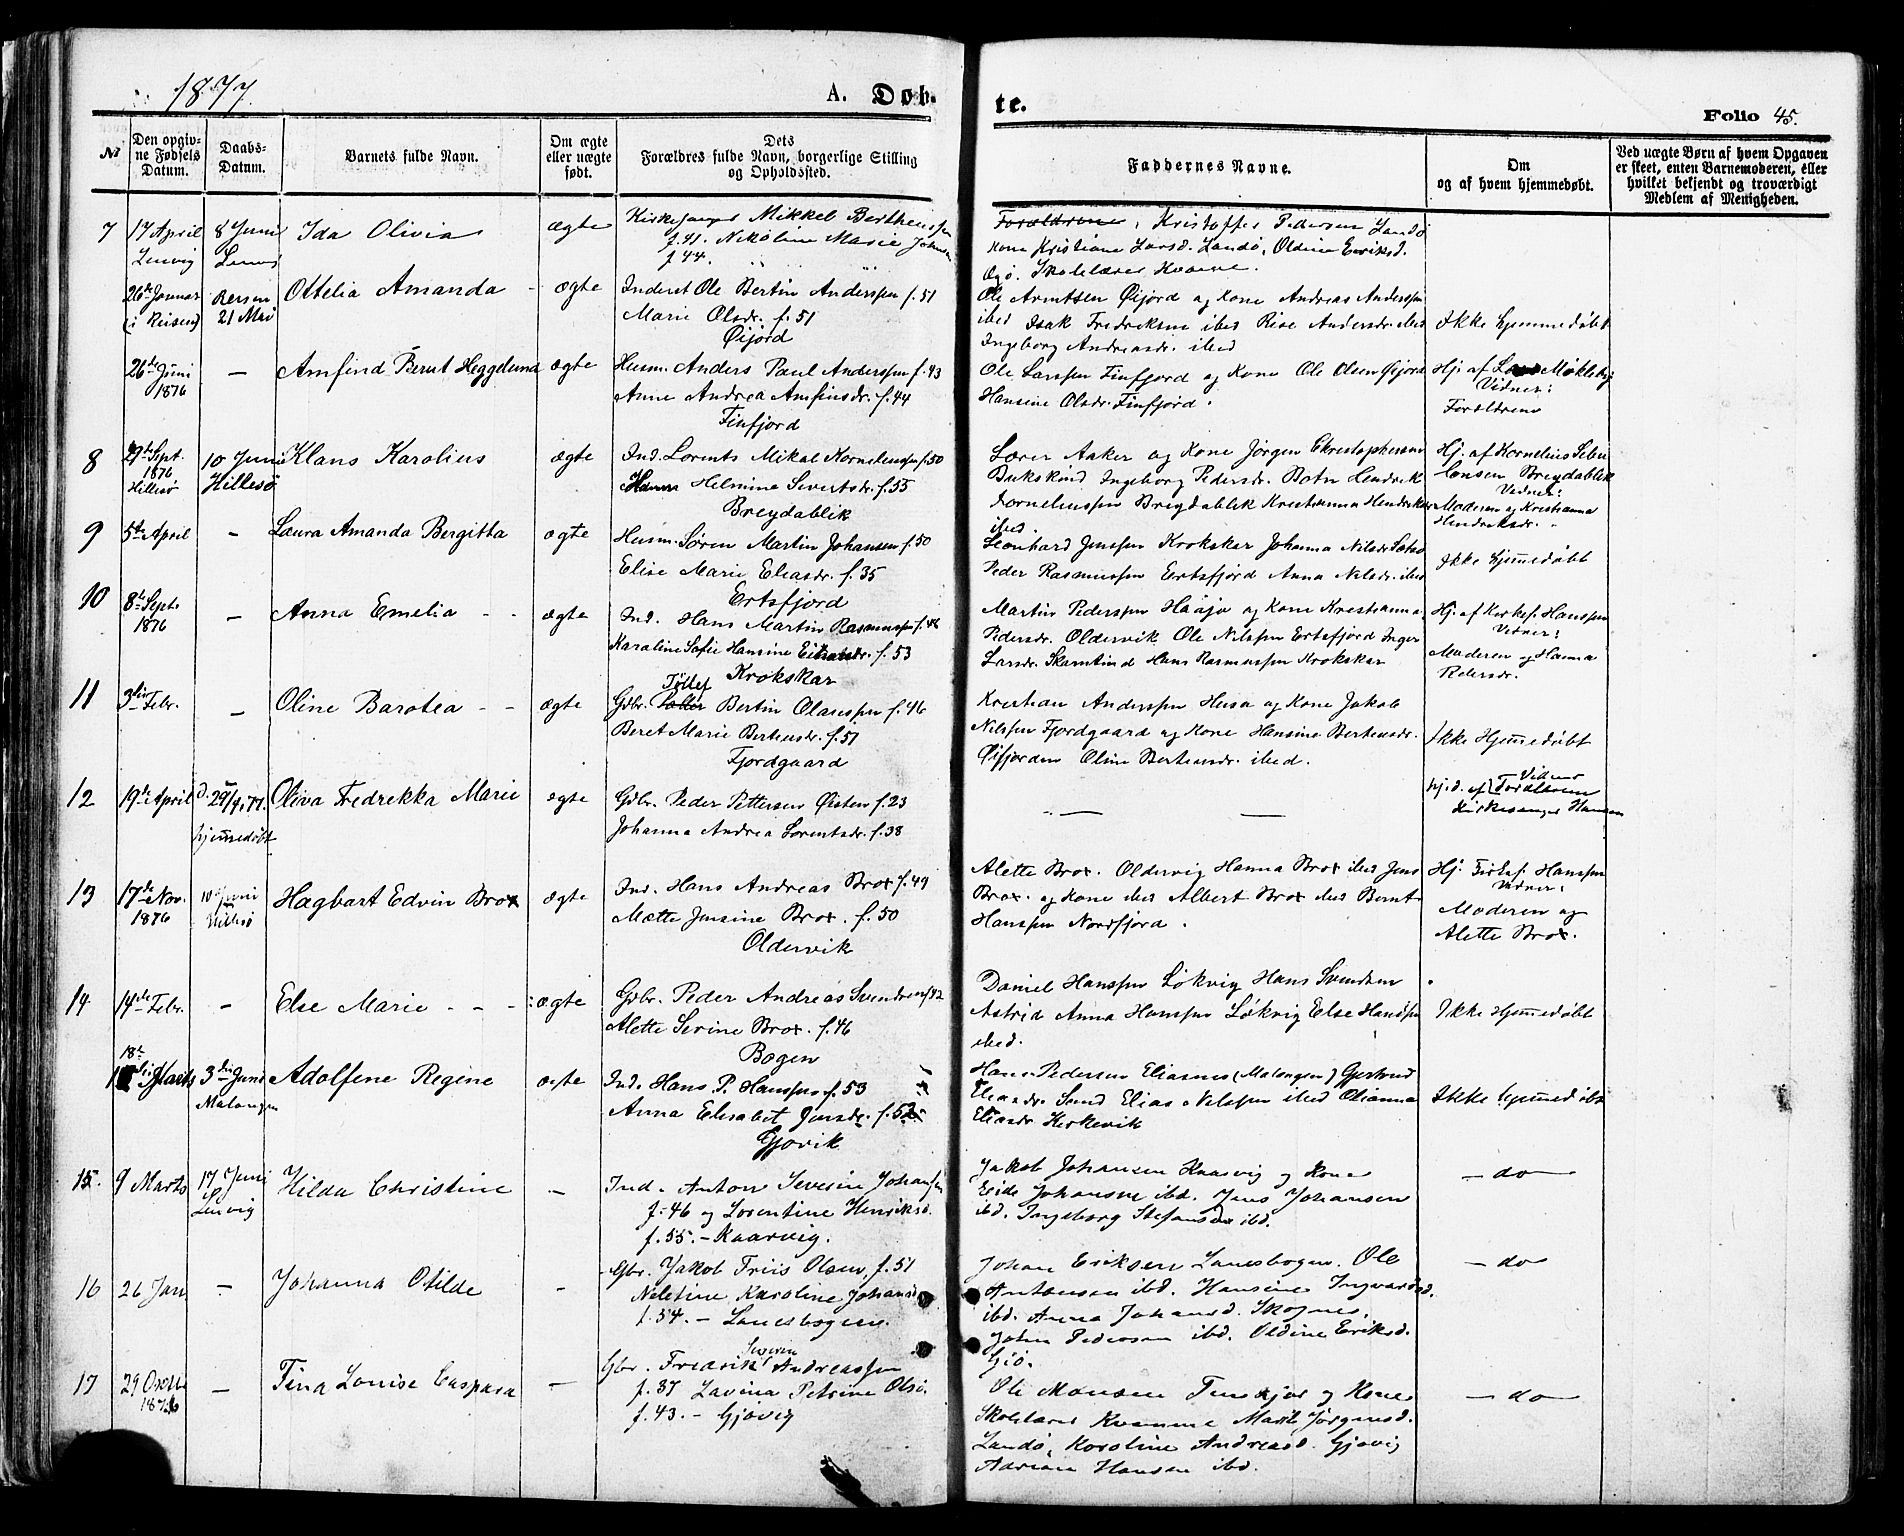 1877.
A. Døb-
te.
Folio 45.
№
Den opgiv-
ne Fødsels
Datum.
Daabs-
Datum.
Barnets fulde Navn.
Om ægte
eller uægte
født.
Dets
Forældres fulde Navn, borgerlige Stilling
og Opholdssted.
Faddernes Navne.
Om
og af hvem hjemmedøbt.
Ved uægte Børn af hvem Opgaven
er skeet, enten Barnemoderen, eller
hvilket bekjendt og troværdigt
Medlem af Menigheden.
7
17 April
Lenvig
8 Juni
Ida Olivia
ægte
Kirkesanger Mikkel Berthenssen
f. 41. Nikoline Marie
f 44.
Forældrene, Kristoffer Pedersen Landø
Kone Kristiane Larsd. Landø, Oldine Eriksd.
26de Januar
(i Reisen)
21 Mai
Ottelia Amanda -
ægte
Inderst Ole Bertin Anderssen f. 51
Marie Olsdr. f. 51
Øijord
Ole Arntsen Øijord og Kone Andreas Anderssen
ibed Isak Fredriksen ibed Andersdr. ibed
Ingeborg Andreasdr. ibed
Ikke hjemmedøbt
26de Juni
1876
-
Arnfind Bernt Heggelund
ægte
Husm. Anders Paul Anderssen f. 43
Anne Andrea Arnfinsdr. f. 44
Finfjord
Ole Larssen Finfjord og Kone Ole Olsen Øijord
Hansine Olsdr. Finfjord.
Hj. af
Vidner:
Forældrene
8
Sept.
1876
Hillesø
10 Juni
Hillesø
Klaus Karolius
ægte
Ind. Lorents Mikal Kornelussen f. 50
Helmine Sivertsdr. f. 55
Breydablik
Lærer Aaker og Kone Jørgen Christophersen
Bukskind Ingeborg Pedersdr. Botn Hendrik
Kornelussen Breydablik Krestianna Hendriksdr.
ibed.
Hj. af Kornelius
Breydablik
Vidner:
Moderen og Kristianna
Hendriksdr.
9
5te April
-
Laura Amanda Bergitha
ægte
Husm. Søren Martin Johansen f. 50
Elise Marie Eliasdr. f. 35
Ertsfjord
Leonhard Jenssen Krokskar Johanna Nilsdr.
Peder Rasmussen Ertsfjord Anna Nilsdr. ibed
Ikke hjemmedøbt
10
8de Sept.
1876
-
Anna Emelia - -
ægte
Ind. Hans Martin Rasmussen f. 46
Karaline Sofie Hansine f. 53
Krokskar
Martin Pederssen Haajø og Kone Krestianna
Pedersdr. Oldervik Ole Nilssen Ertsfjord Inger
Larsdr. Skamtind Hans Rasmussen Krokskar
Hj. af Kirkes. Hanssen
Vidner:
Moderen og Hanna
Pedersdr.
11
3die Febr.
-
Oline Barotea - -
ægte
Gbr. Bertin Olaussen f. 46
Beret Marie Bertensdr. f. 51
Fjordgaard
Krestian Anderssen Husø og Kone Jakob
Nilssen Fjordgaard og Kone Hansine Bertensdr.
Øifjorden Oline Bertensdr. ibed.
Ikke Hjemmedøbt
12
19de April
d. 29/4 77
hjemmedøbt
Oliva Fredrekka Marie
ægte
Gbr. Peder Pettersen Øisten f. 23
Johanna Andrea Lorentsdr. f. 38
— —
hj.d. af Vidner
Forældrene
Kirkesanger Hansen
13
17de Nov.
1876
10 Juni
Hillesø
Hagbart Edvin Brox
ægte
Ind. Hans Andreas Brox f. 49
Mette Jensine Brox. f. 50
Oldervik
Alette Brox. Oldervig Hanna Brox ibed Jens
Brox. og Kone ibed Albert Brox ibed Bernt
Hanssen Nordfjord.
Hj. Hanssen
Vidner:
Moderen og
Alette Brox.
14
14de Febr.
-
Else Marie - - -
ægte
Gbr. Peder Andreas Svendsen f. 42
Alette Serine Brox. f. 46
Bogen
Daniel Hanssen Løkvig Hans Svendsen
Astrid Anna Hanssen Løkvig Else Hanssen
ibed.
Ikke Hjemmedøbt
18de
Marts
3die Juni
Malangen
Adolfine Regine
ægte
Ind. Hans P. Hanssen f. 53
Anna Elisabet Jensdr. f. 52
Gjøvik
Hans Pedersen Eliasnes (Malangen) Gjertrud
Eliasdr. Sand Elias Nilssen ibed Olianna
Eliasdr. Kerkevik
Ikke hjemmedøbt
15.
9 Marts
17 Juni
Lenvig
Hilda Christine
-
Ind. Anton Severin Johansen
f. 46 og Lorentine Henriksd.
f. 55. - Kaarvig.
Jakob Johansen Kaarvig og Kone
Johansen ibd. Jens Johansen
ibd. Ingeborg Stefansen ibd.
- do -
16
26 Jan.
-
Johanna Otilde
-
Gbr. Jakob Friis Olsen, f. 51
Karoline Johansd.
f. 54. - Lanesbogen.
Johan Eriksen Lanesbogen. Ole
Antonsen ibd. Hansine Ingvardsd.
ibd. Anna Johansd. Skognes.
John Pedersen ibd. Oldine Eriksd.
Giø.
- do
17
29
1876
-
Tina Louise Caspara
-
Gbr. Fredrik Severin Andreassen
f. 37 Lavina Petrine
f. 43. - Gjøvig
Ole Monsen og Kone
Kvamme Jørgensd.
Landø, Karoline Andreasd. Gjøvig
Adrian Hansen ibd.
- do -